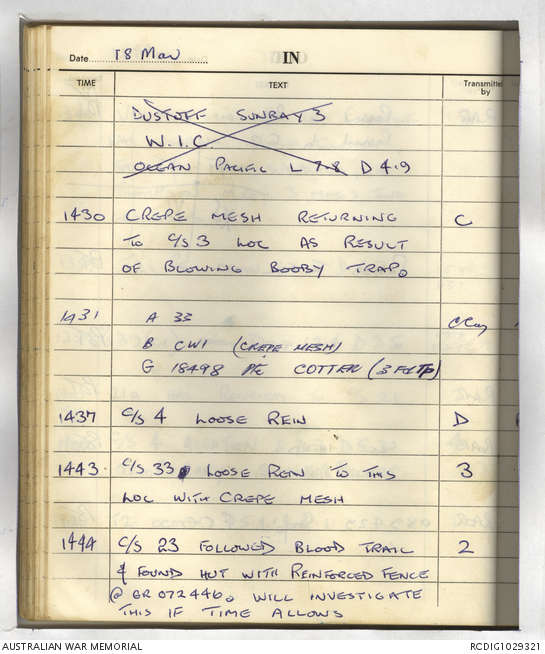 Date 18 Mar IN
TIME TEXT Transmitted by
DUSTOFF SUNRAY 3
W.I.C.
OCEAN PACIFIC L 7.8 D 4.9
1430 CREPE MESH RETURNING C
TO C/S 3 LOC AS RESULT
OF BLOWING BOOBY TRAP.
1431 A 33
B CW1 (CREPE MESH)
G 18498 Pte COTTER (3 Fd Tp)
1437 C/S 4 LOOSE REIN D
1443. C/S 33 LOOSE REIN TO THIS 3
LOC WITH CREPE MESH
1444 C/S 23 FOLLOWED BLOOD TRAIL 2
& FOUND HUT WITH REINFORCED FENCE
@ GR 072446. WILL INVESTIGATE
THIS IF TIME ALLOWS
AUSTRALIAN WAR MEMORIAL RCDIG1029321